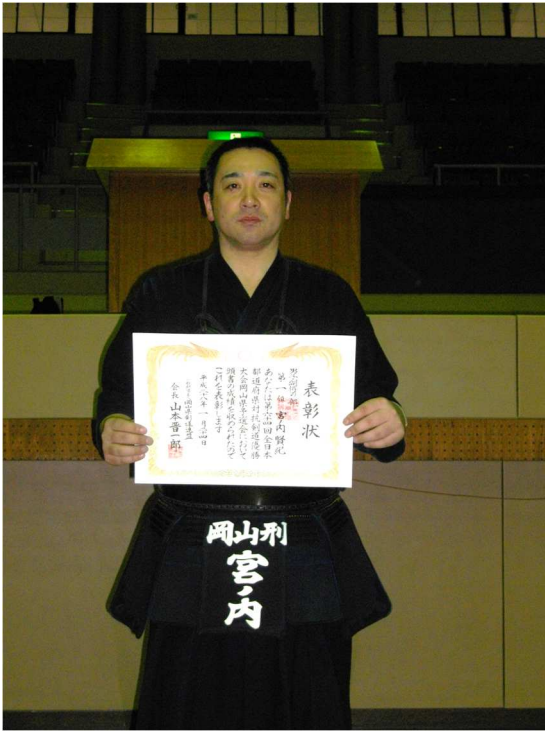 表彰状
男子団体ノ部
第一位 宮ノ内賢紀
あなたは第六四回全日本
都道府県対抗剣道優勝
大会岡山県予選会において
頭書の成績を収められたので
これを表彰します
平成二八年一月二四日
岡山県剣道連盟
会長 山本晋一郎
岡山刑
宮ノ内